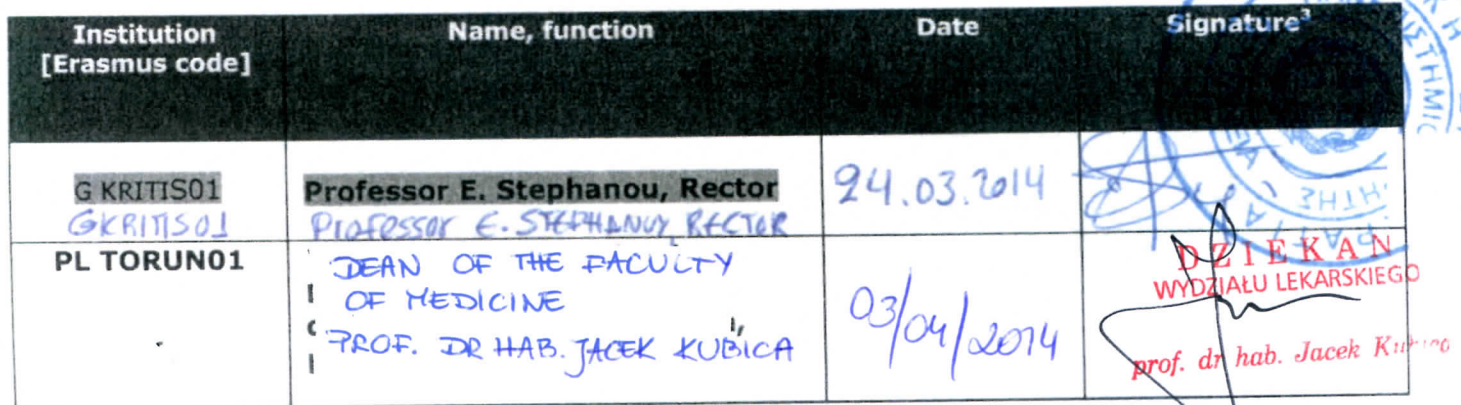 Institution
[Erasmus code]
Name, function
Date
Signature³
G KRITIS01
GKRITIS01
Professor E. Stephanou, Rector
Professor E. STEPHANOY, RECTOR
24.03.2014
PL TORUN01
DEAN OF THE FACULTY
OF MEDICINE
PROF. DR HAB. JACEK KUBICA
03/04/2014
DZIEKAN
WYDZIAŁU LEKARSKIEGO
prof. dr hab. Jacek Kubica